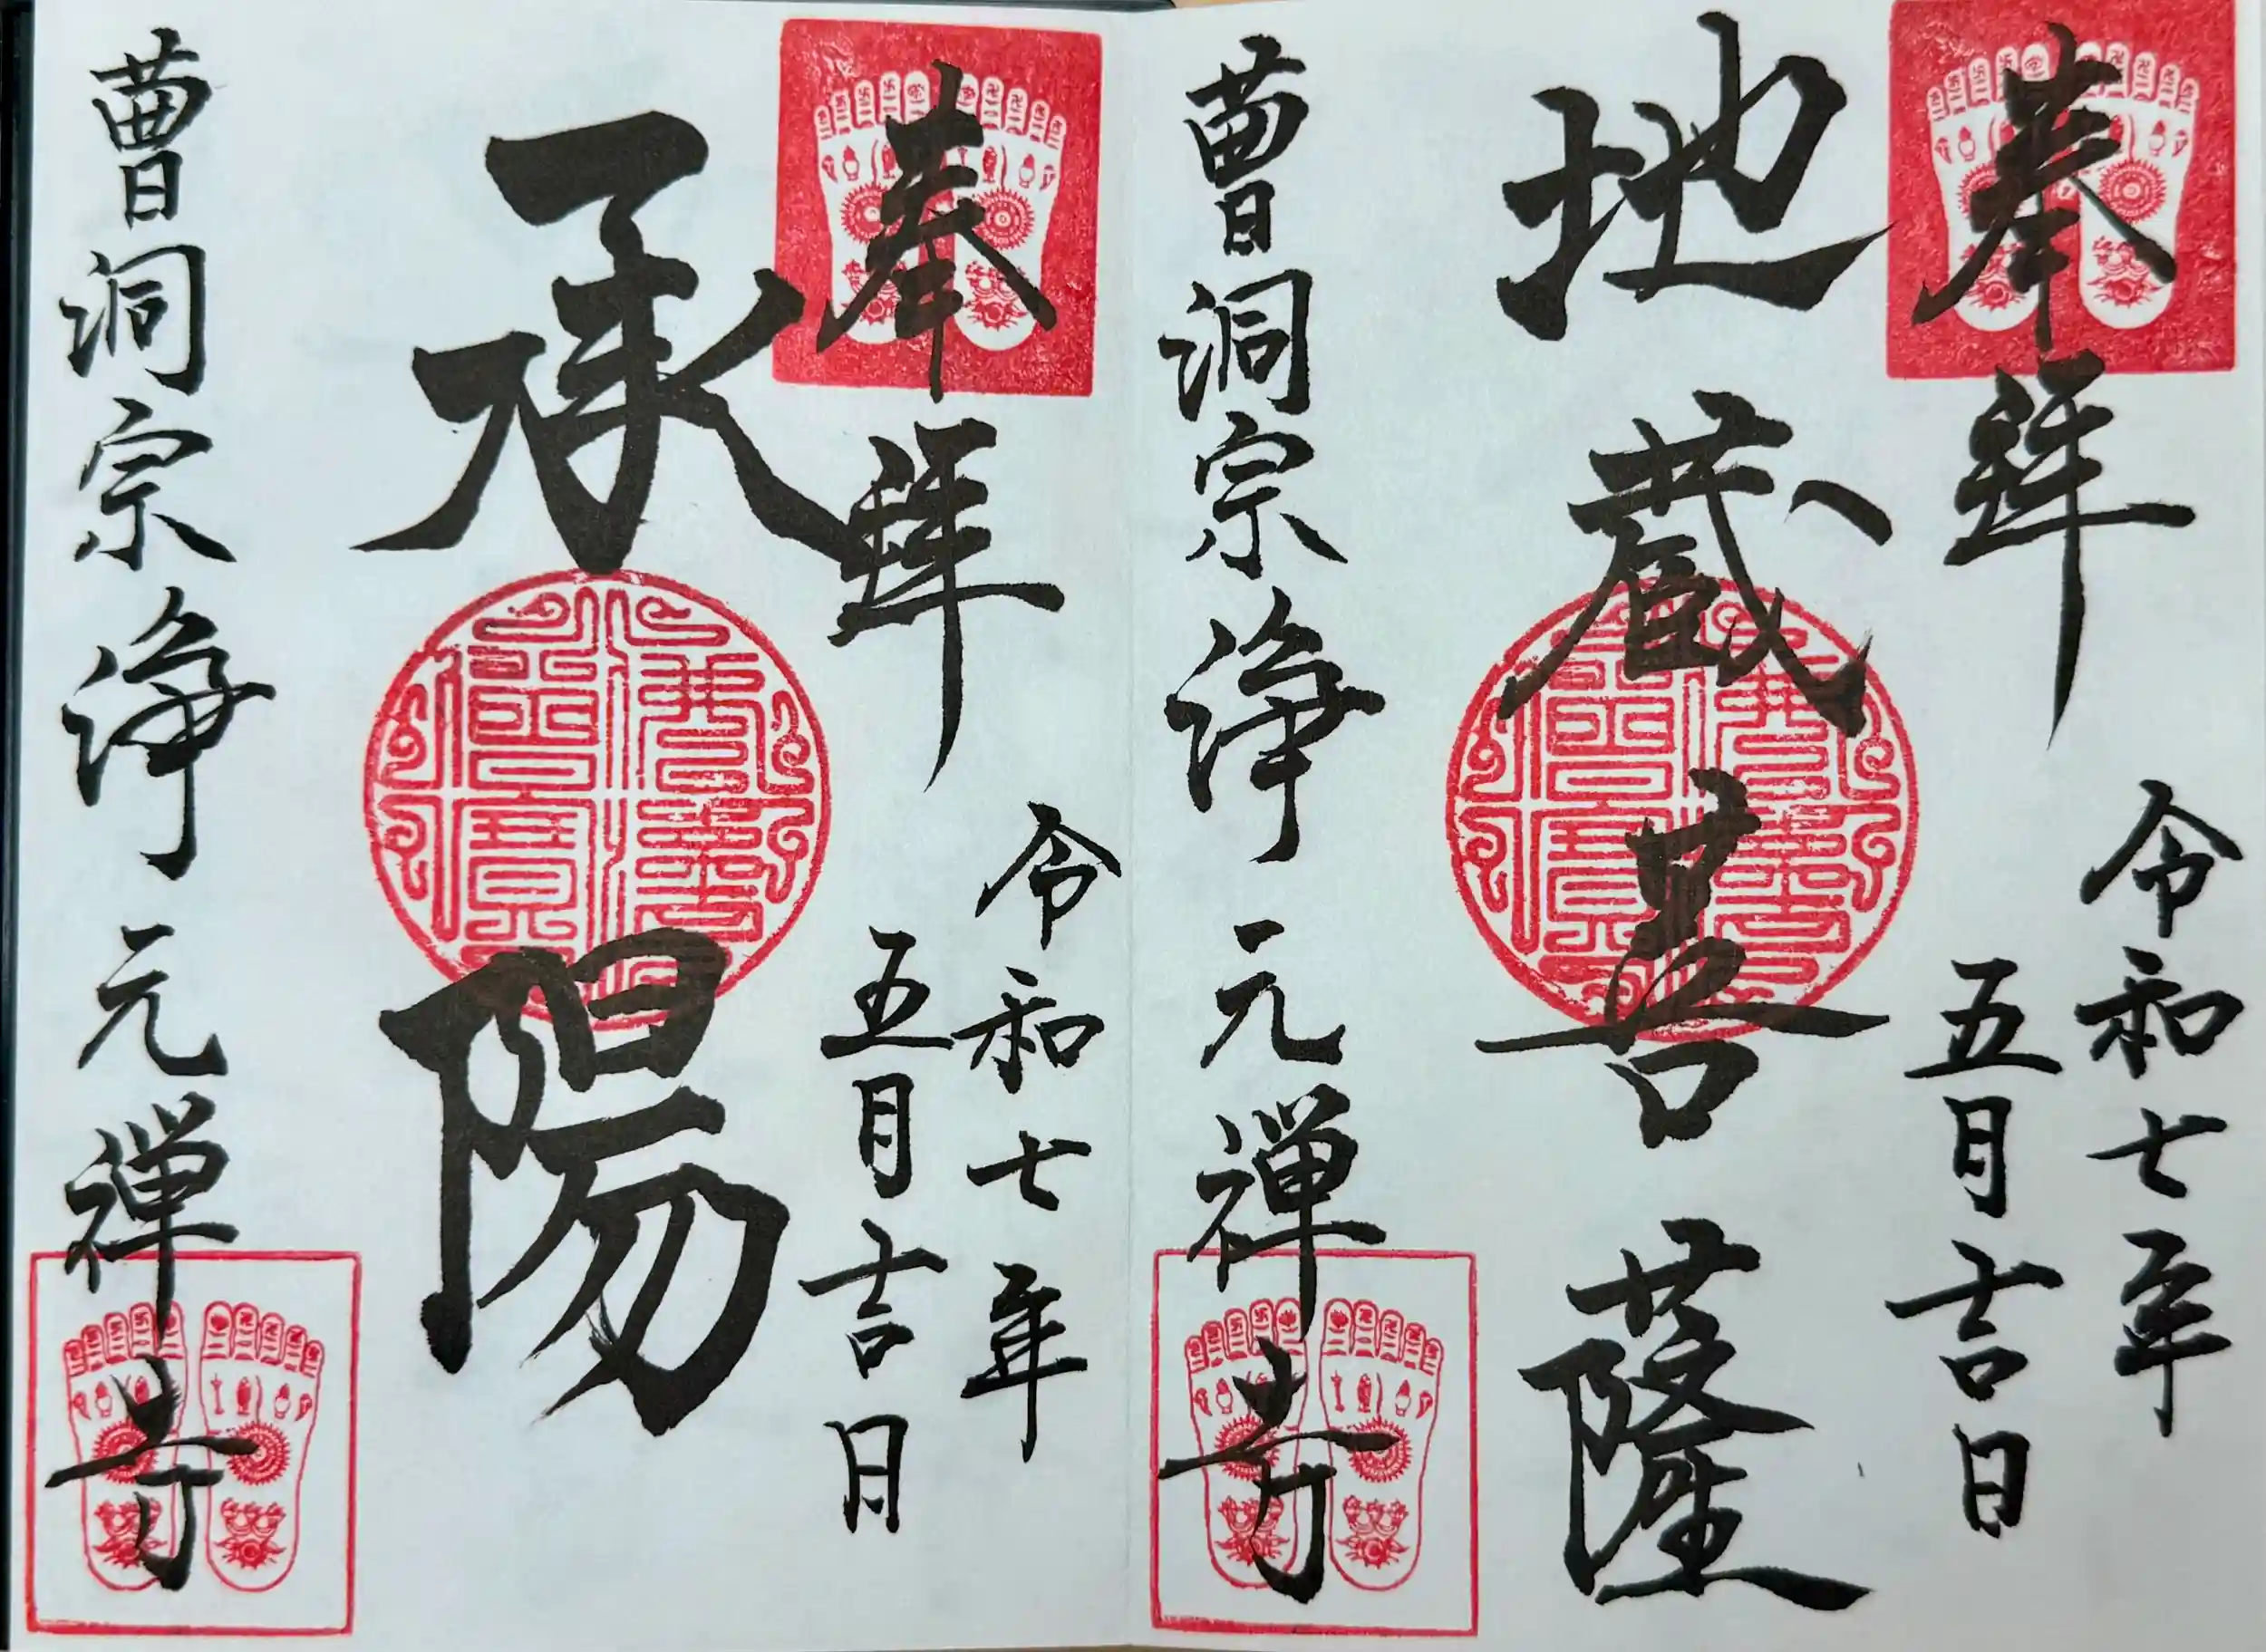 奉拝
令和七年
五月吉日
地蔵菩薩
曹洞宗 浄元禅寺
奉拝
令和七年
五月吉日
承陽
曹洞宗 浄元禅寺